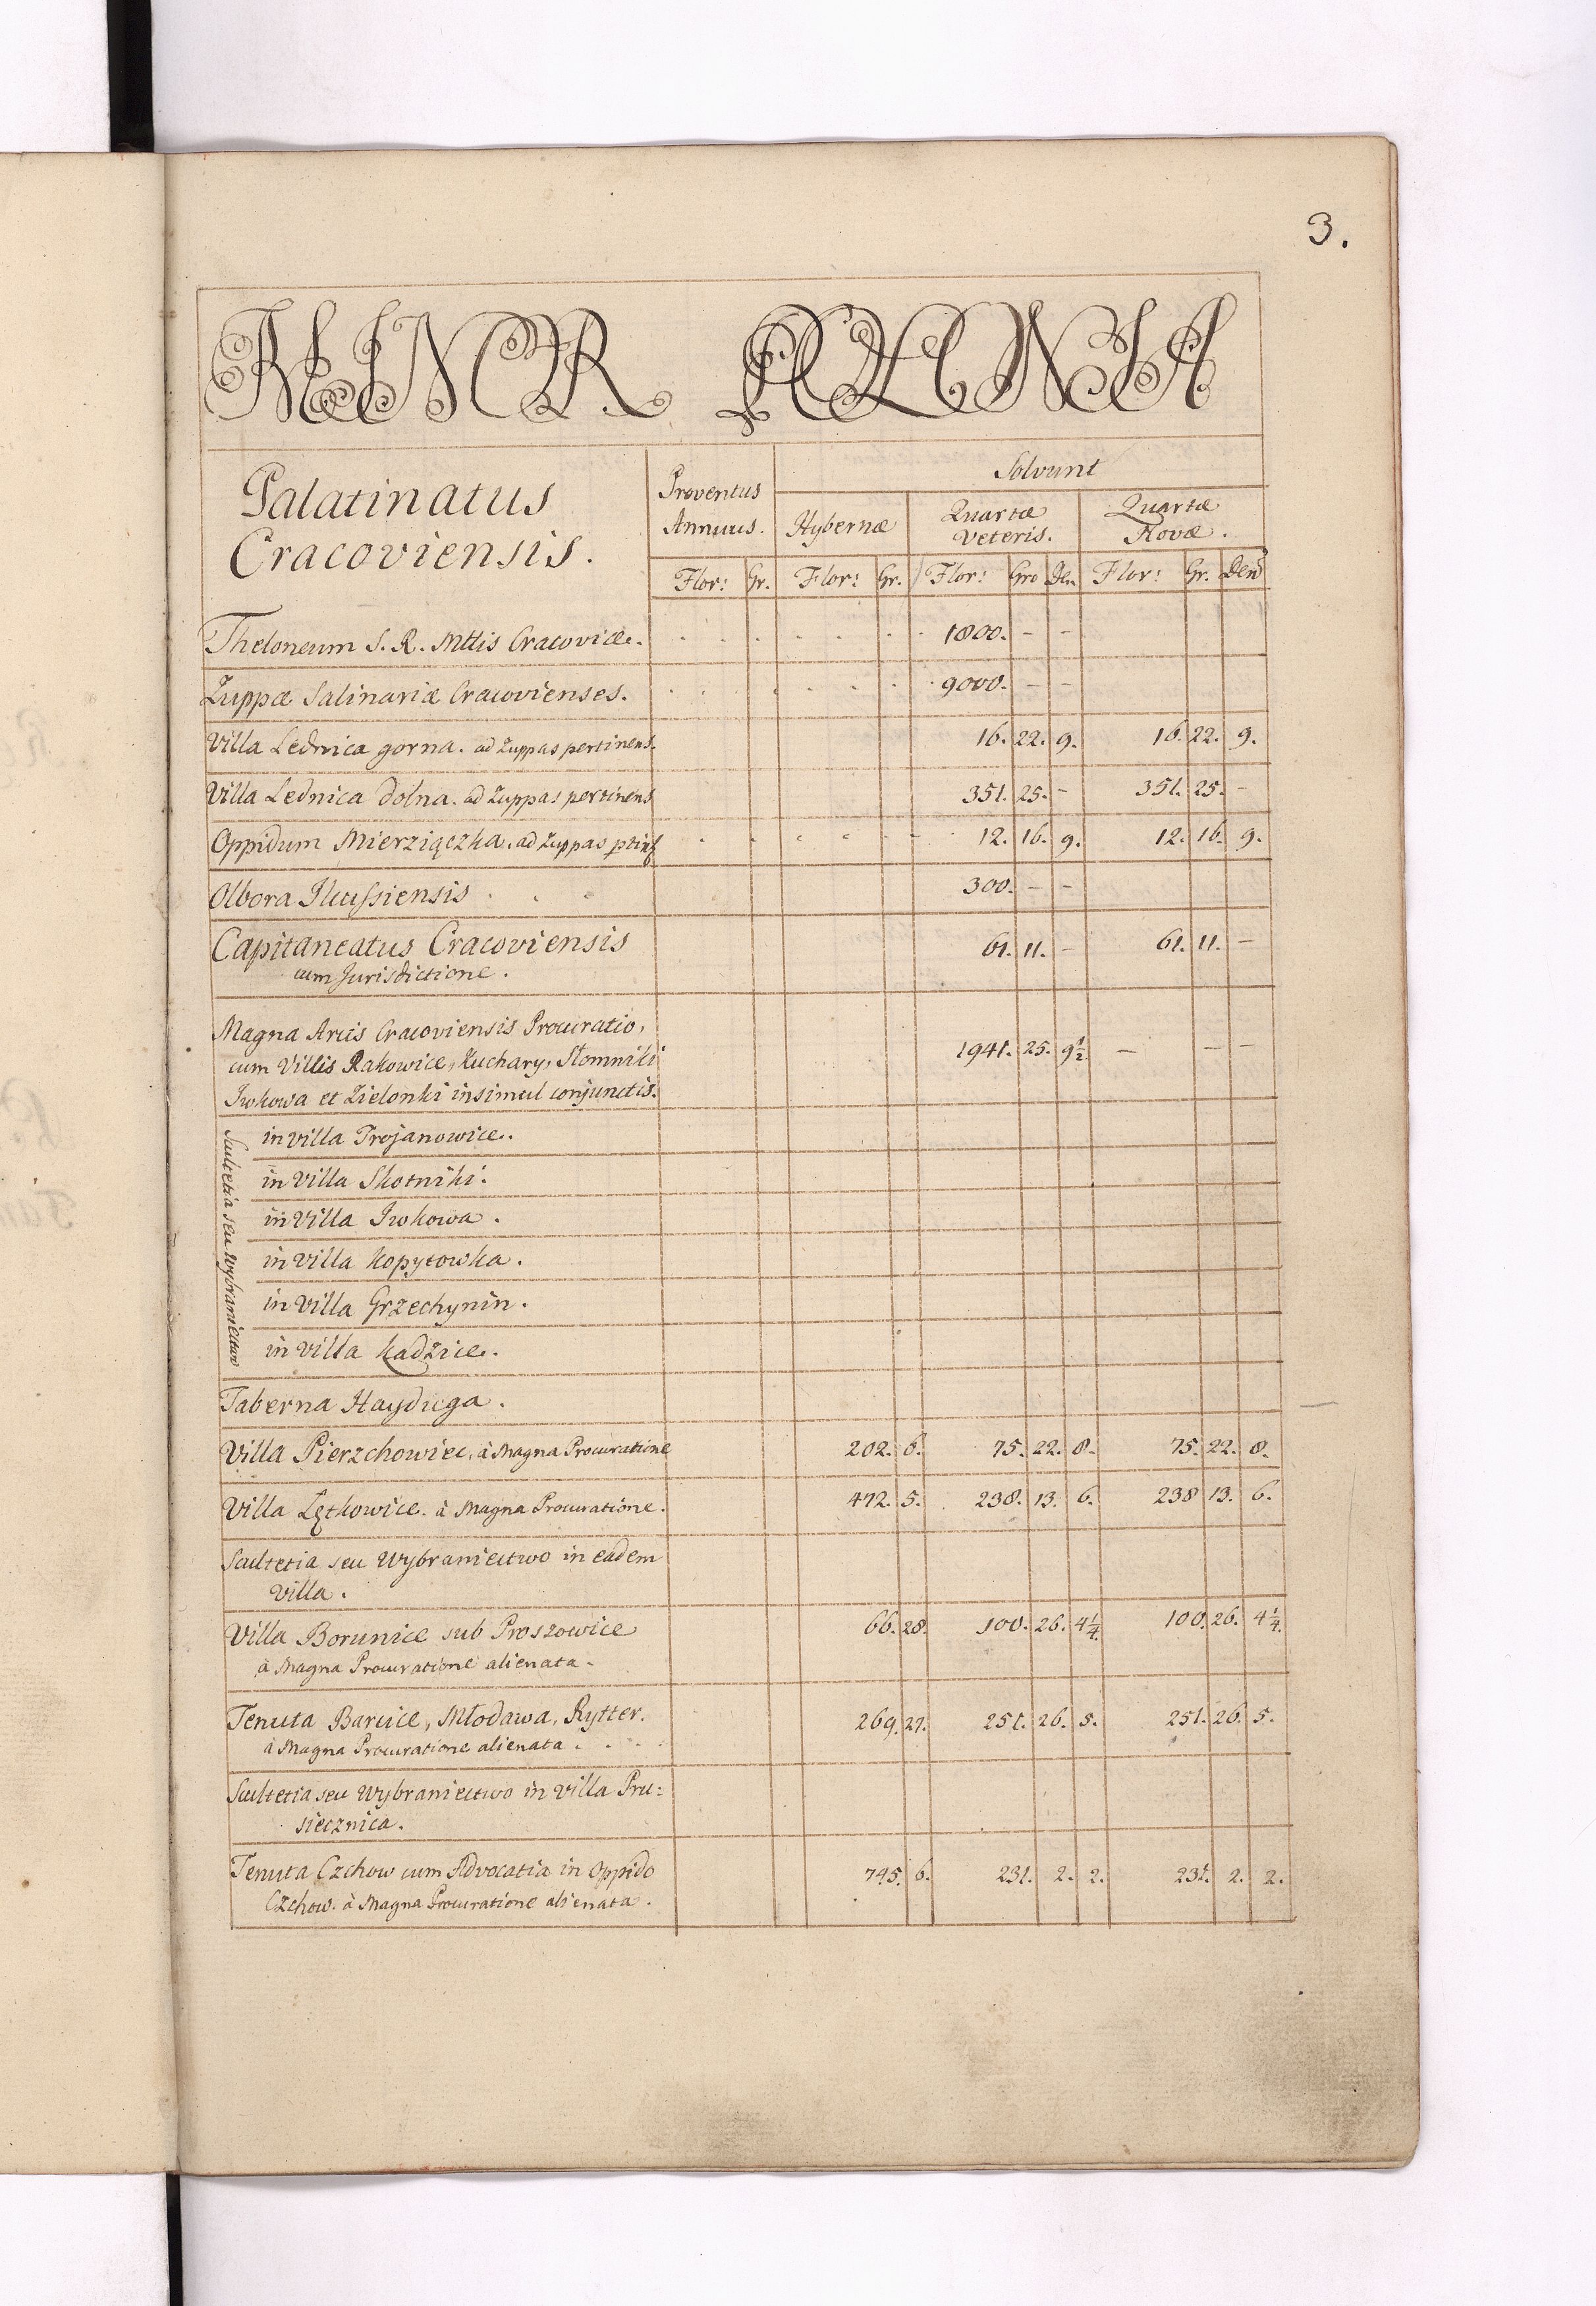 3.
MINOR POLONIA
Palatinatus
Cracoviensis.
Proventus
Annuus.
Solvunt
Hybernæ
Quartæ
Veteris.
Quartæ
Novæ.
Flor: Gr. Flor: Gr. Flor: Gro Den Flor: Gr. Den
Theloneum S. R. Mttis Cracoviæ. 1800. - -
Zuppæ Salinariæ Cracovienses. 9000. - -
Villa Lednica gorna. ad Zuppas pertinens. 16. 22. 9. 16. 22. 9.
Villa Lednica dolna. ad Zuppas pertinens 351. 25. - 351. 25. -
Oppidum Mierziączka. ad Zuppas 12. 16. 9. 12. 16. 9.
Olbora Ilcussiensis 300. - -
Capitaneatus Cracoviensis 61. 11. - 61. 11. -
cum Jurisdictione.
Magna Arcis Cracoviensis Procuratio,
cum Villis Rakowice, Kuchary, Słomniki 1941. 25. 9½ - - -
Iwkowa et Zielonki insimul conjunctis.
Scultetia seu Wybraniectwo
in villa Trojanowice.
in Villa Skotniki.
in Villa Iwkowa.
in Villa Kopytowka.
in Villa Grzechynin.
in villa Kadzice.
Taberna Hayduga.
Villa Pierzchowiec, à Magna Procuratione 202. 6. 75. 22. 8. 75. 22. 8.
Villa Lętkowice. à Magna Procuratione. 472. 5. 238. 13. 6. 238 13. 6.
Scultetia seu Wybraniectwo in eadem
Villa.
Villa Borunice sub Proszowice 66. 28. 100. 26. 4¼ 100. 26. 4¼
à Magna Procuratione alienata.
Tenuta Barcice, Młodawa, Rytter. 269. 27. 251. 26. 5. 251. 26. 5.
à Magna Procuratione alienata.
Scultetia seu Wybraniectwo in Villa Pru:
siecznica.
Tenuta Czchow cum Advocatia in Oppido 795. 6. 231. 2. 2. 231. 2. 2.
Czchow. à Magna Procuratione alienata.